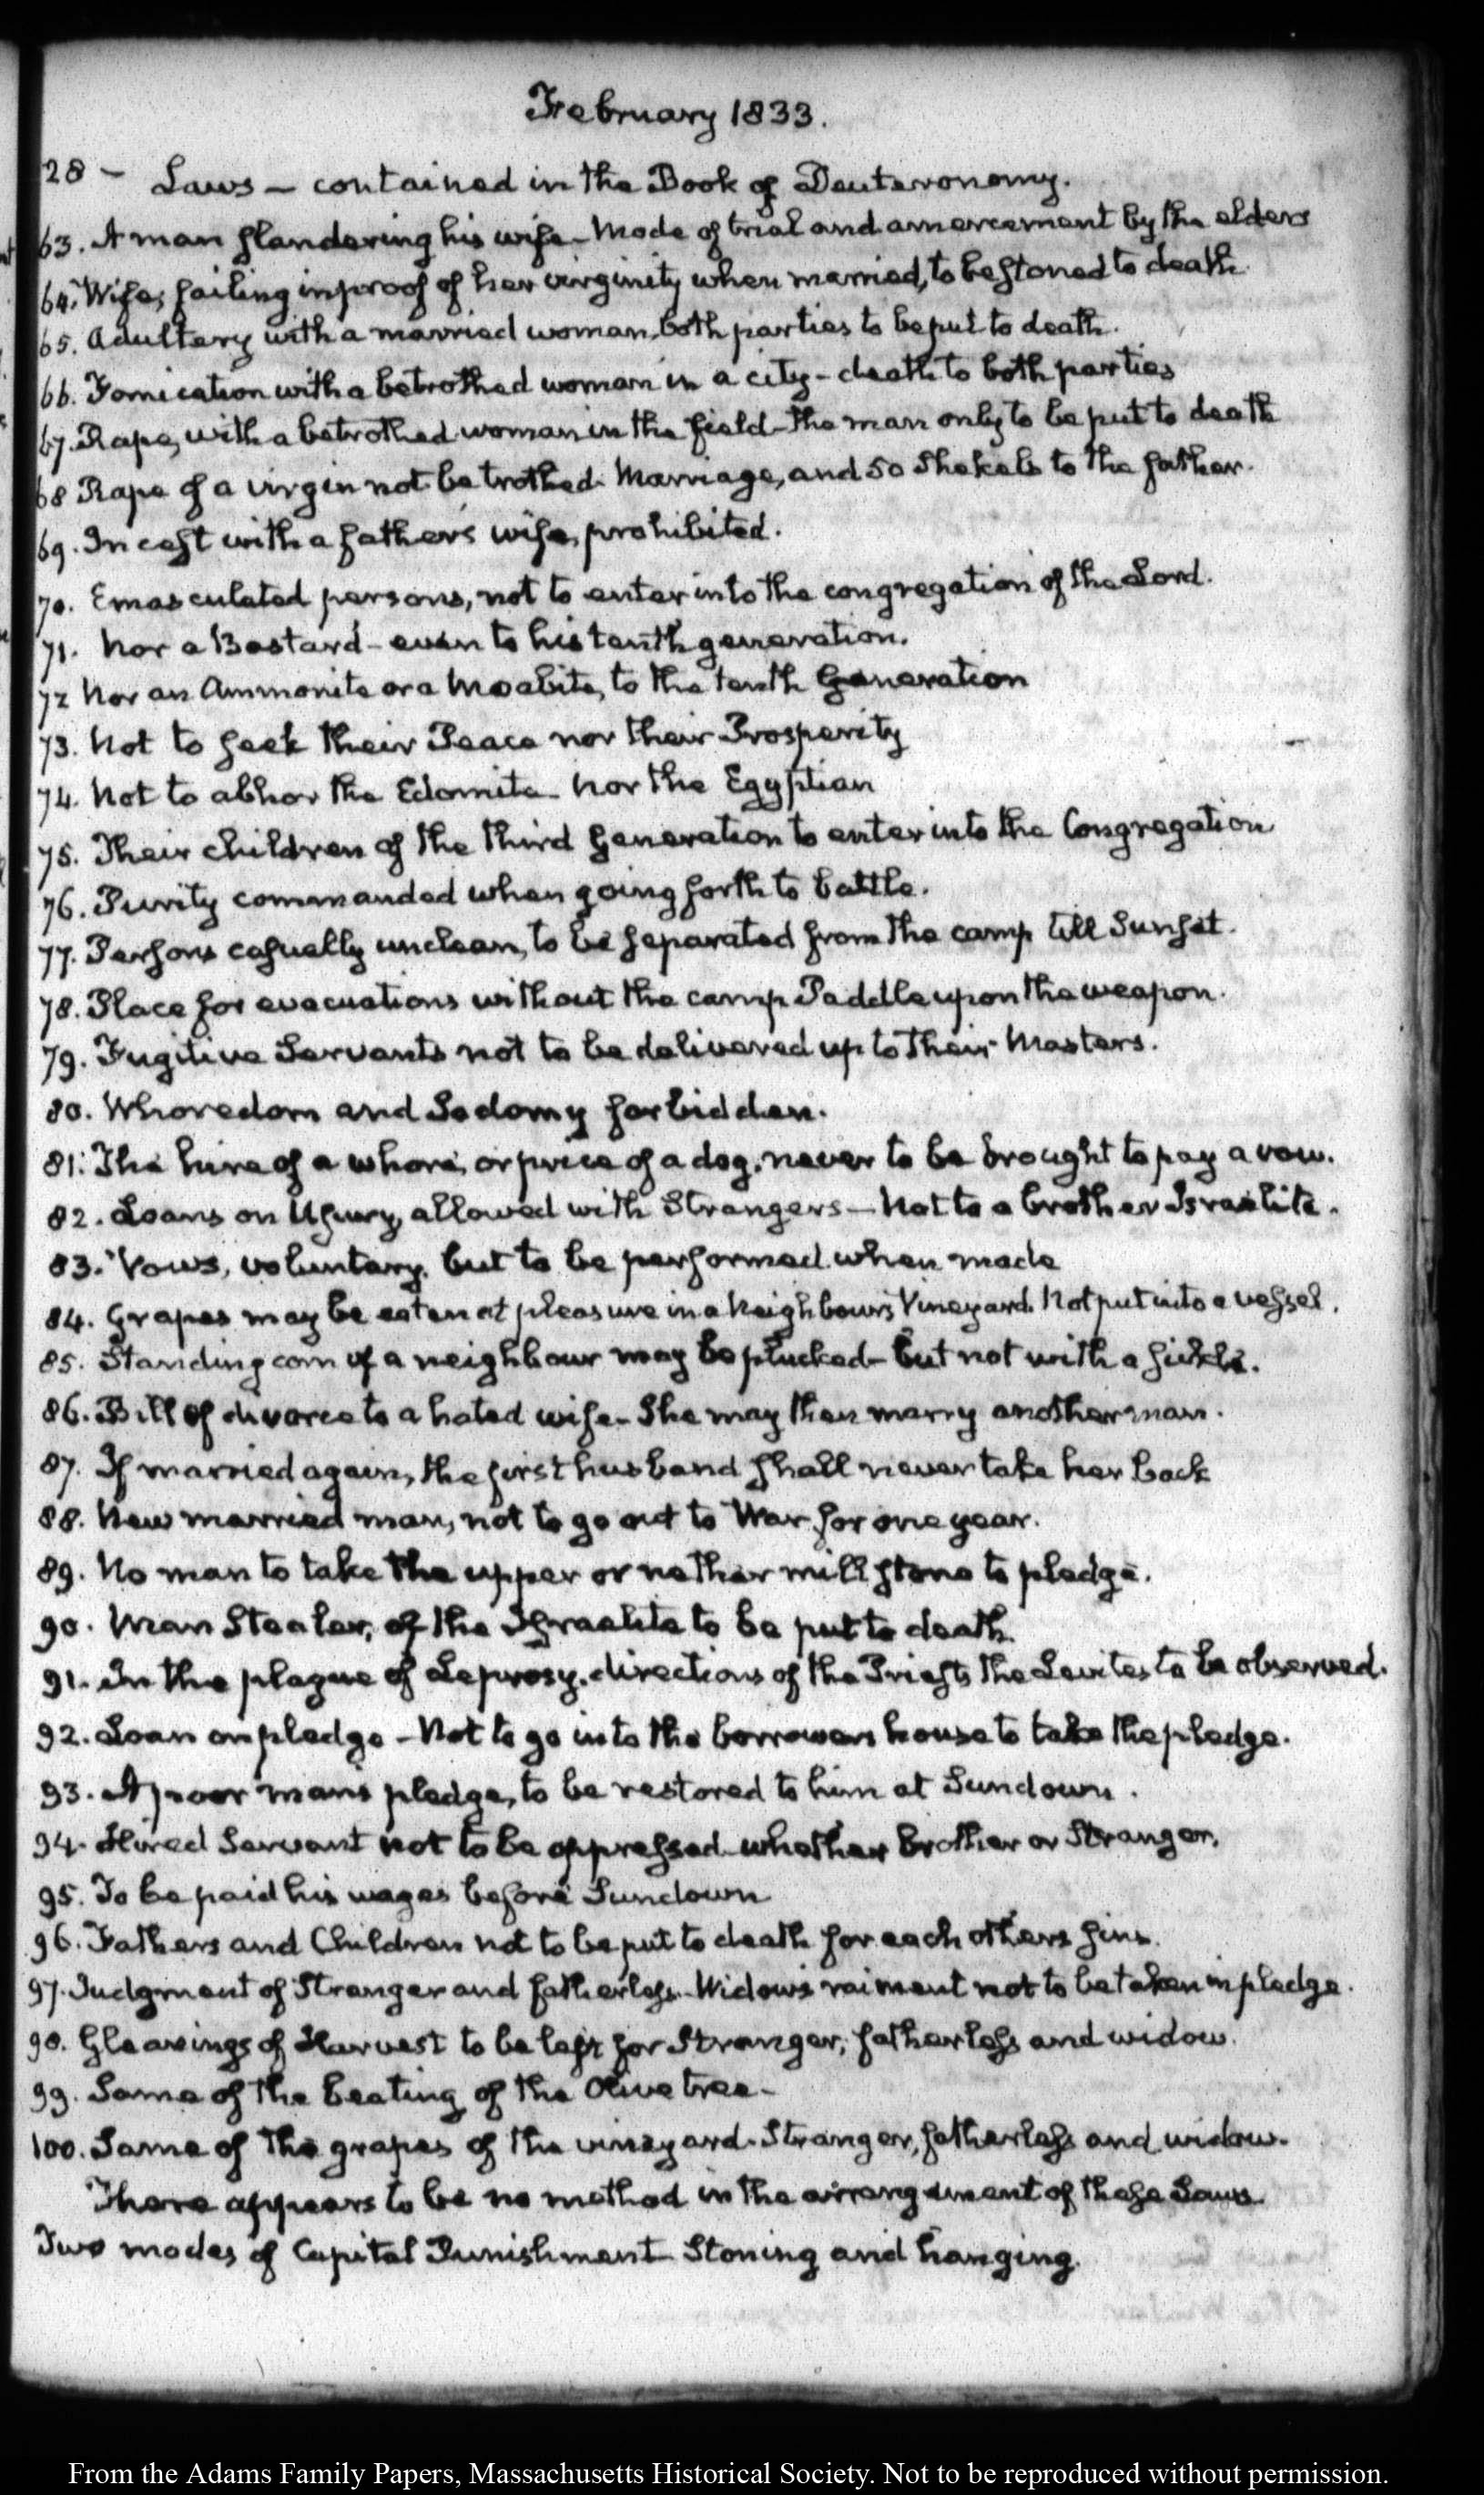 February 1833.
28 - Laws - contained in the Book of Deuteronomy.
63. A man slandering his wife - Mode of trial and amercement by the elders
64. Wife, failing in proof of her virginity when married, to be stoned to death
65. Adultery with a married woman, both parties to be put to death.
66. Fornication with a betrothed woman in a city - death to both parties
67. Rape, with a betrothed woman in the field - the man only to be put to death
68 Rape of a virgin not betrothed. Marriage, and 50 Shekels to the father.
69. Incest with a father's wife, prohibited.
70. Emasculated persons, not to enter into the congregation of the Lord.
71. Nor a Bastard - even to his tenth generation.
72 Nor an Ammonite or a Moabite, to the tenth Generation
73. Not to seek their Peace nor their Prosperity
74. Not to abhor the Edomite nor the Egyptian
75. Their children of the third Generation to enter into the Congregation
76. Purity commanded when going forth to battle.
77. Persons casually unclean, to be separated from the camp till Sunset.
78. Place for evacuations without the camp Paddle upon the weapon.
79. Fugitive Servants not to be delivered up to their Masters.
80. Whoredom and Sodomy forbidden.
81. The hire of a whore, or price of a dog, never to be brought to pay a vow.
82. Loans on Usury, allowed with Strangers - Not to a brother Israelite.
83. Vows, voluntary, but to be performed when made
84. Grapes may be eaten at pleasure in a Neighbour's Vineyard. Not put into a vessel.
85. Standing corn of a neighbour may be plucked - but not with a sickle.
86. Bill of divorce to a hated wife - She may then marry another man.
87. If married again, the first husband shall never take her back
88. New married man, not to go out to War for one year.
89. No man to take the upper or nether mill stone to pledge.
90. Man Stealer, of the Israelite to be put to death
91. In the plague of Leprosy, directions of the Priests the Levites to be observed.
92. Loan on pledge - Not to go into the borrowers house to take the pledge.
93. A poor man's pledge, to be restored to him at Sundown.
94. Hired Servant not to be oppressed whether brother or Stranger.
95. To be paid his wages before Sundown
96. Fathers and Children not to be put to death for each others sins.
97. Judgment of Stranger and fatherless. Widow's raiment not to be taken in pledge.
98. Gleanings of Harvest to be left for Stranger, fatherless and widow.
99. Same of the beating of the Olive tree -
100. Same of the grapes of the vineyard. Stranger, fatherless and widow.
There appears to be no method in the arrangement of these Laws
Two modes of Capital Punishment Stoning and hanging.
From the Adams Family Papers, Massachusetts Historical Society. Not to be reproduced without permission.